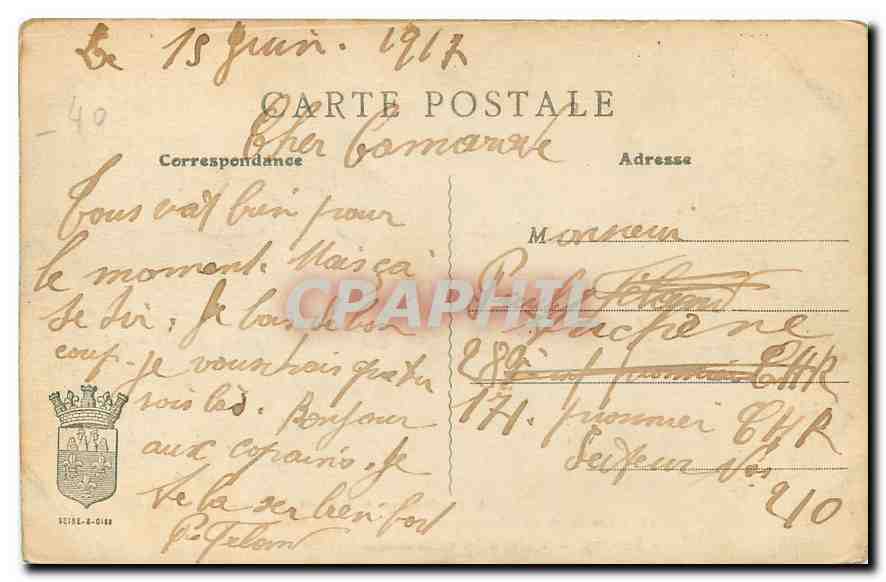 Le 15 Juin. 1917
- 40
CARTE POSTALE
Cher Camarade
Correspondance
Tous vat bien pour
le moment. Mais ça
se tir, Je bois de bon
coup. je voudrais que tu
sois là. Bonjour
aux copains. Je
te la serre bien fort
Adresse
Monsieur
Duchene
289 THR
171. pionnier THR
Secteur
210
SEINE-&-OISE
CPAPHIL